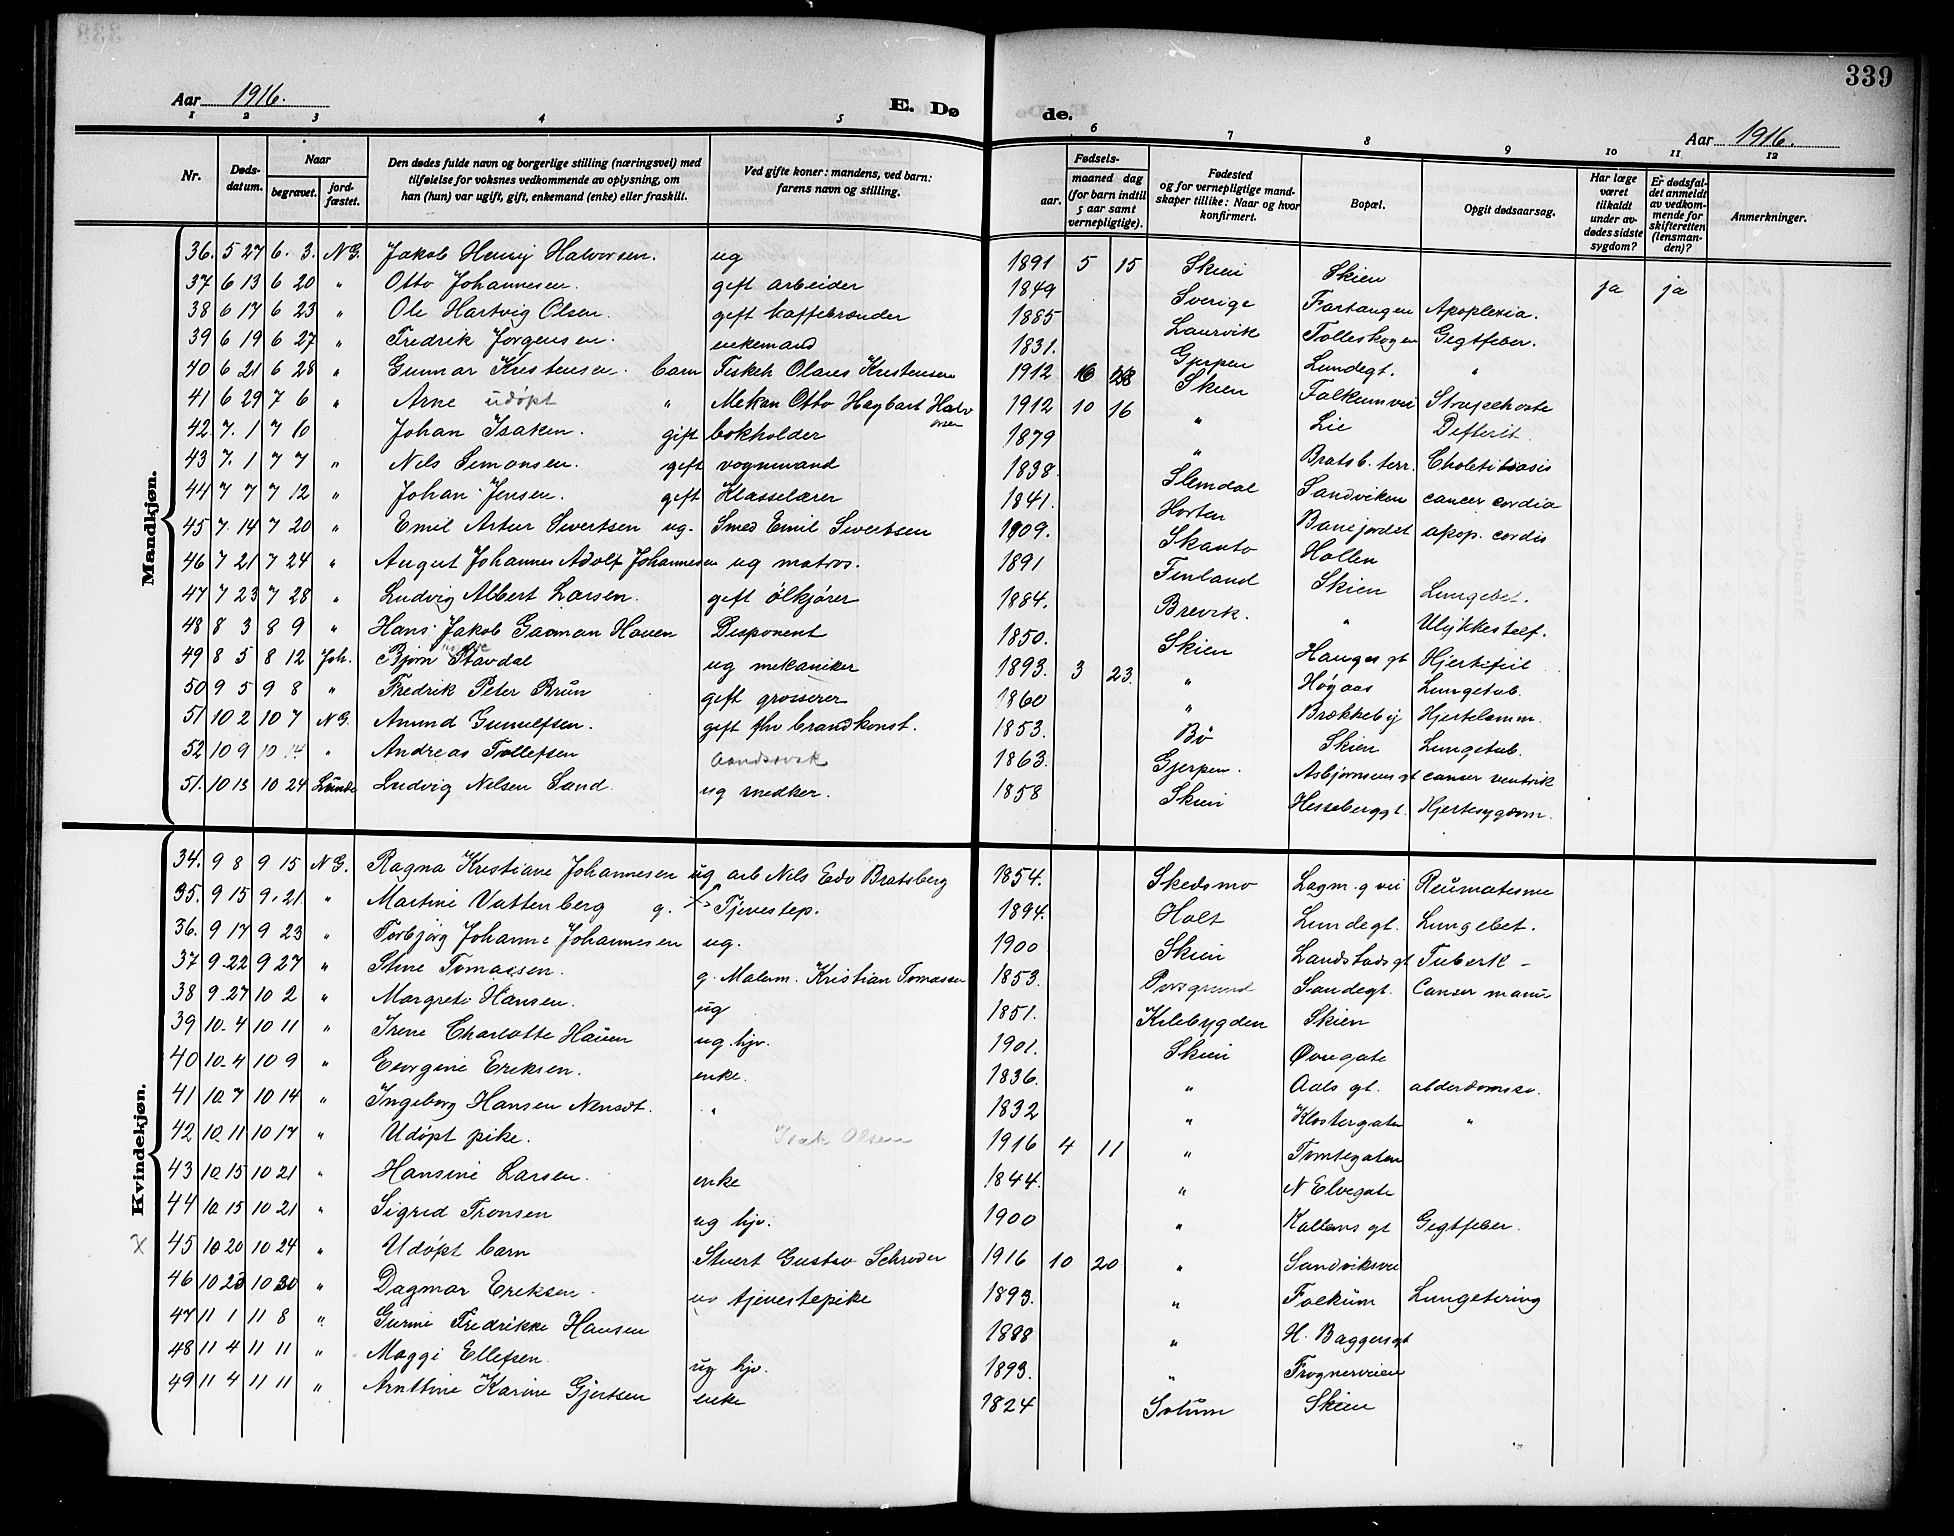 339
Aar 1916.
E. Døde.
Aar 1916.
1 2 3 4 5 6 7 8 9 10 11 12
Nr.
Dødsdatum.
Naar
begravet.
jordfæstet.
Den dødes fulde navn og borgerlige stilling (næringsvei) med
tilføielse for voksnes vedkommende av oplysning, om
han (hun) var ugift, gift, enkemand (enke) eller fraskilt.
Ved gifte koner: mandens, ved barn:
farens navn og stilling.
Fødsels-
aar.
maaned dag
(for barn indtil
5 aar samt
vernepligtige).
Fødested
og for vernepligtige mand-
skaper tillike: Naar og hvor
konfirmert.
Bopæl.
Opgit dødsaarsag.
Har læge
været
tilkaldt
under av-
dødes sidste
sygdom?
Er dødsfal-
det anmeldt
av vedkom-
mende for
skifteretten
(lensman-
den)?
Anmerkninger.
Mandkjøn.
36. 5 27 6. 3. NG. Jakob Henry Halvorsen. ug 1891 5 15 Skien Skien
37 6 13 6 20 " Otto Johannesen. gift arbeider 1849 Sverige Fartangen Apoplexia. ja ja
38 6 17 6 23 " Ole Hartvig Olsen. gift kaffebrænder 1885 Laurvik Tolleskogen Gegtfeber.
39 6 19 6 27 " Fredrik Jørgensen. enkemand 1831. Gjerpen Lundegt. "
40 6 21 6 28 " Gunnar Kristensen. barn Fiskeh Olares Kristensen 1912 Skien Falkumvei Strupehoste
41 6 29 7 6 " Arne udøpt " Mekan Otto Hagbart Halvorsen 1912 10 16 " Lie Defterit.
42. 7. 1 7 16 Johan Isaken. gift bokholder 1879 " Bratsb. terr. Choletitiasis
43 7. 1 7 7 " Nils Simonsen. gift vognmand 1838. Slemdal Sandviken cancer cordia
44 7 7 7 12 " Johan Jensen. gift Klasselærer 1841. Horten Banejordet apop. cordis
45 7. 14 7 20 " Emil Artur Sivertsen ug. Smed Emil Sivertsen 1909. Skaato Hollen
46 7 21 7 24 " August Johannes Adolf Johannesen ug matros. 1891 Finland Skien Lungebet.
47 7 23 7 28 " Ludvig Albert Larsen. gift ølkjører 1884. Brevik. " Ulykkestelf.
48 8 3 8 9 " Hans Jakob Gasman Hauen Disponent 1850. Skien Hanges gt Hjertefeil
49 8 5 8 12 Joh. Bjørn Stavdal ug mekaniker 1893. 3 23. " Høgaas Lungetub.
50 9 5 9 8 " Fredrik Peter Brun gift grosserer 1860 " Brækkeby Hjertelamm.
51 10 2 10 7 NG. Amund Gunulfsen. gift fhv brandkonst. 1853. Bø Skien Lungetub.
52 10 9 10 14 " Andreas Tollefsen 1863. Gjerpen. Asbjørnsens gt canser ventrik
51. 10 13 10 24 Lunde Ludvig Nelsen Sand. ug snedker. 1858 Skien Hesseberggt. Hjertesygdom.
Kvindekjøn.
34. 9 8 9 15 NG. Ragna Kristiane Johannesen ug arb Nils Edv Bratsberg 1854. Skedsmo Lagm. g vei Reumatisme
35. 9 15 9. 21 " Martine Vattenberg g. Tjenestep. 1894. Holt Lundegt. Lungebet.
36. 9 17 9 23 " Torbjørg Johanne Johannesen ug. 1900 Skien Landstads gt Tuberk -
37 9.22 9 27 " Stine Tomassen. g. Malerm. Kristian Tomassen 1853. Porsgrund Landegt. Canser
38 9.27 10 2 " Margrete Hansen. ug 1851. Kilebygden Skien
39 10.4 10 11 " Irene Charlotte Hauen ug. hjv. 1901. Skien Øvregate
40 10.4 10 9 " Georgine Eriksen. enke. 1836. " Aals gt. alderdomssv.
41 10.7 10 14 " Ingeborg Hansen Nensæt. " 1832 " Klostergaten "
42 10.11 10 17 " Udøpt pike. Isak Olsen 1916 4 11 " Tomtegaten
43 10.15 10 21 " Hansine Larsen. enke 1844. " N Elvegate
44 10.15 10 21 " Sigrid Tronsen ug hjv. 1900 " Kallems gt Gegtfeber.
X 45 10 20 10 24 " Udøpt barn Stuert Gustav Schrøder 1916 10 20 " Sandviksvei
46 10 23 10 30 " Dagmar Eriksen. ug tjenestepike 1893. " Falkum Lungetering
47 11 1 11 8 " Gurine Fredrikke Hansen 1888 " H. Baggers gt
48 11 4 11 11 " Maggi Ellefsen. ug hjv. 1893. " Frognerveien
49 11 4 11 11 " Anttine Karine Gjertsen enke 1824 Solum Skien